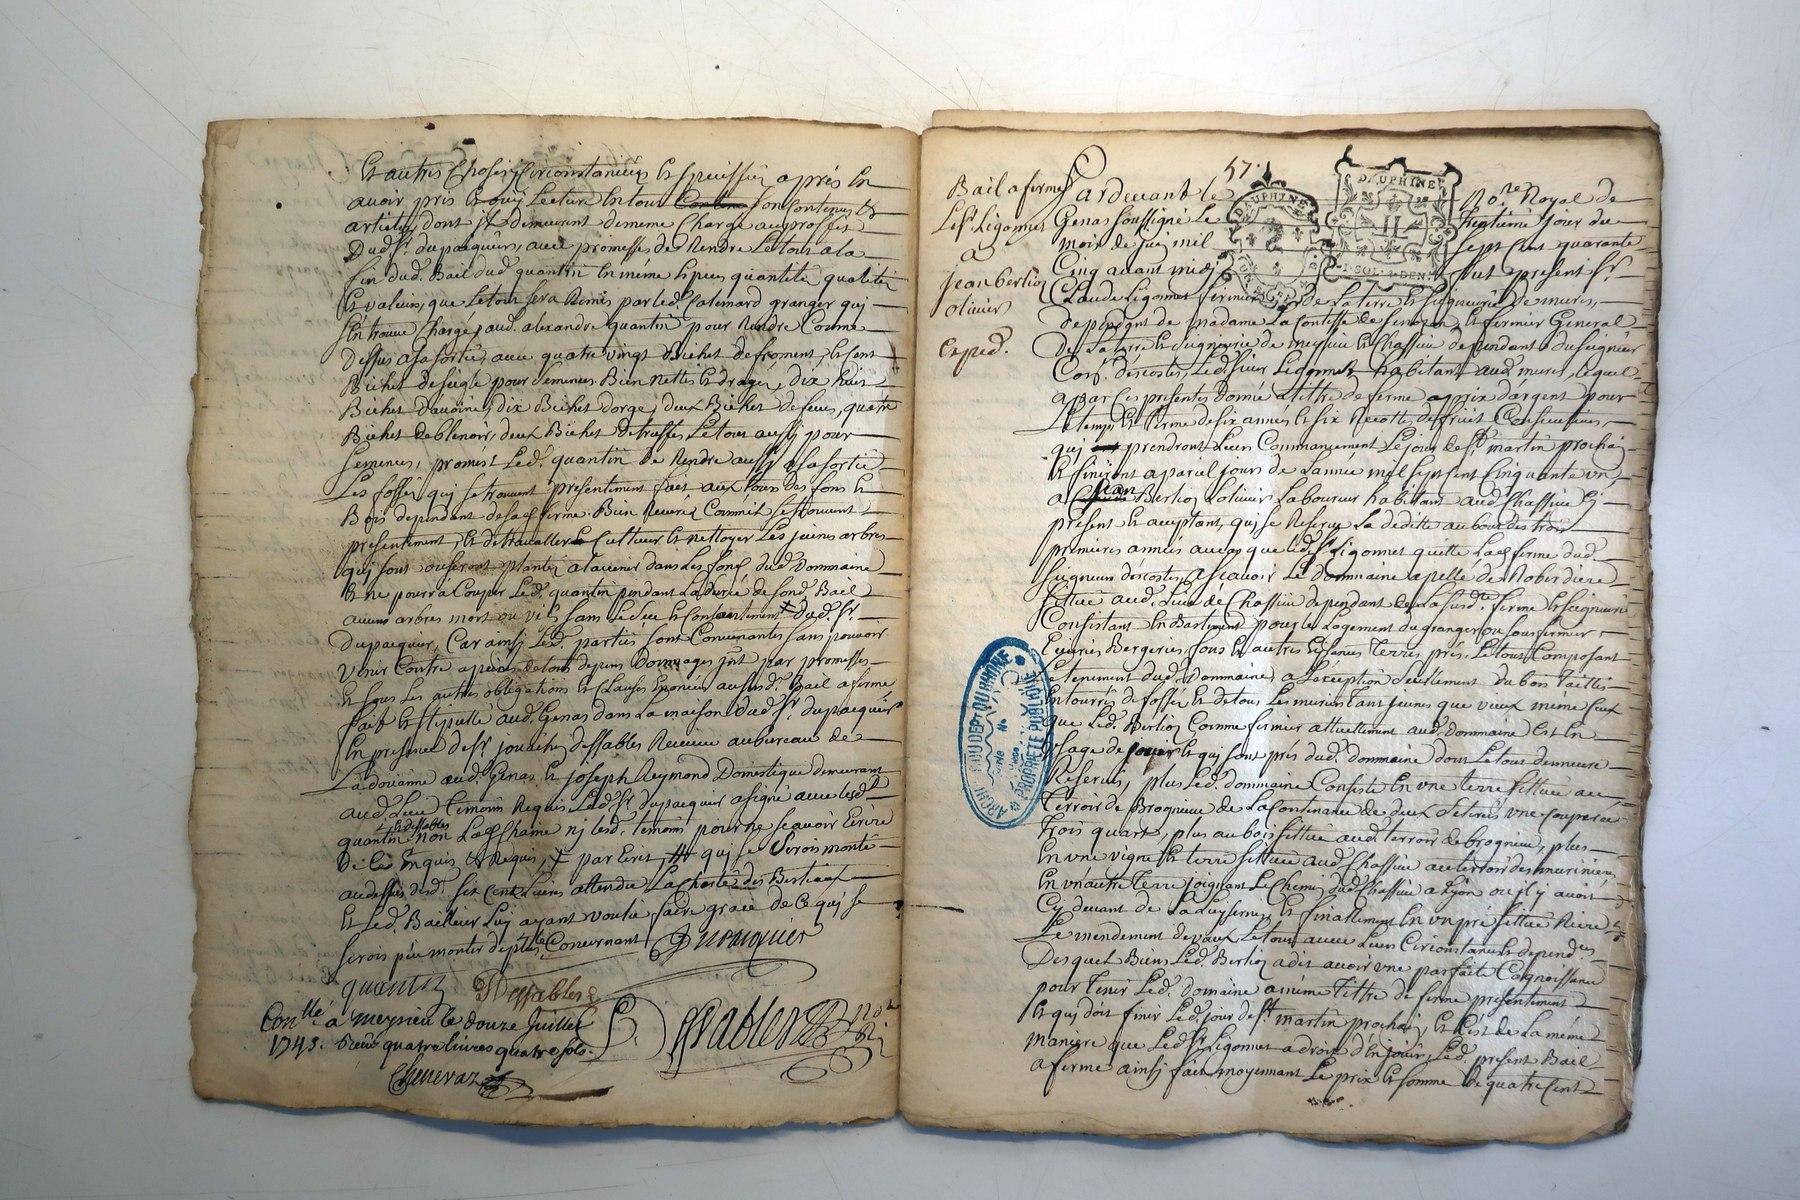 Et autres choses circonstanciées Et après En
avoir pris Et ouy Lecture En tout son contenus Et
articles, dont il demeurent de meme Charge au proffit
Dud. Sr. dupacquier, avec promesse de Rendre Le tout a la
fin dud. Bail dud. quantin En même Espece quantité qualitéz
Et valeur, que Le tout sera Remis par led. Calemard granger qui
S'en trouve Chargé, aud. alexandre quantin pour Rendre Comme
Dessus a sa sortie, avec quatre vingt Bichet de froment, Et Cent
Bichet de seigle pour Semences Bien Nettes Et dragés, dix huit
Bichet D'avoine, dix Bichet d'orge, deux Bichet de feves, quatre
Bichet de blenoir, deux Bichet de truffes Le tout aussy pour
Semences, promest Led. quantin de Rendre aussy a sa sortie
Les fosses qui se trouvent presentement fait aux tours des fons Et
Bois dependant de lad. ferme Bien Recurés Comme il se trouvent
presentement, Et de travailler Cultiver Et nettoyer Les jeunes arbres
qui sont ou seront plantés a l'avenir dans Les fons dud. Dommaine
Et ne pourra Couper Led. quantin pendant La durée de sond. Bail
aucuns arbres mort ou vif sans Le sceu Et Consantement dud. Sr.
Dupacquier, Car ainsy Les parties sont Convenantes sans pouvoir
Venir Contre a peine de tous depens Dommages par promesses
Et sous Les autres obligations Et Clauses aud. Bail a ferme
fait Et stipullé aud. Genas dans La maison dud. Sr. dupacquier
En presence de Sr. dessables Receveur au bureau de
La doüanne aud. Genas Et joseph Reymond Domestique demeurant
aud. Lieu temoin Requis Led. Sr. dupacquier a signé avec Led.
Et dessables
quantin non Lad. Chaine ny Led. temoin pour ne sçavoir Ecrire
De Ce Enquis Et Requis, par Ecrit, qui se Serois monté
au dessus desd. six Cent Livres attendu La Charté des Bestiaux
Et Led. Bailleur Luy ayant voulu faire grace de Ce qui se
serois pû monter de plus Concernant Dupacquier
quantin Dessables
Conllé a meysieu le douze Juillet
1745. Reçu quatre livres quatre sols. Dessables No.re
Chenevaz
57.
Bail a ferme
Le Sr. Ligonnet
a
jean berlioz
l'olivier
Exped.
DAUPHINE
DAUPHINE
SOL. DEN.
Pardevant le No.re Royal de
Genas soussigné Le Trentieme jour du
mois de juin mil sept Cent quarante
Cinq avant midy fut present Sr.
Claude Ligonnet fermier de La terre Et seigneurie de mures,
dependant de madame La Contesse de Senozan, Et fermier General
De La terre Et seigneurie de meysieu Et Chassieu dependant du seigneur
Descostes, Led. sieur Ligonnet habitant aud. mures, lequel
a par Ces presentes donné a tittre de ferme a prix d'argent pour
Le temps Et terme de six années Et six Recolte de fruit Consecutives,
qui prendront Leurs Commancement Le jour de St. martin prochain
Et finiront a pareil jours de L'année mil sept Cent Cinquante un,
jean
a Berlioz L'olivier Laboureur habitant aud. Chassieu Cy
present Et acceptant, qui se Reserve La deditte au bout des trois
premieres années au cas que led. Sr. Ligonnet quitte Lad. ferme dud.
seigneur descostes, asçavoir Le Dommaine apellé de Roberdiere
situé aud. Lieu de Chassieu dependant de La susd.te ferme Et seigneurie
Consistant En Bastiment pour le Logement du granger ou sous fermier,
Ecuries Bergeries, fons Et autres Terres, prés, Le tout Composant
Le tenement dud. Dommaine, a l'éxception seullement du bois taillis
Entourrés de fossés Et de tous Les muriers tant jeunes que vieux même Ceux
que Led. Berlioz Comme fermier attuellement aud. dommaine Est En
Usage de jouir Et qui sont prés dud. dommaine dont Le tout demeure
Reservés, plus Led. dommaine Consiste En une terre situee au
Terroir de Brognieu de La Contenance de deux Setirées une Couperée
Trois quart, plus au bois situé aud. terroir de brognieu, plus
En une vigne Et terre situee aud. Chassieu au terroir des murinieres
En un autre terre joignant Le Chemin dud. Chassieu a Lyon ou il y avoit
Cy devant de La Luzerne, Et finallement En un pré situé Riere
Le mendement de vaux Le tout avec Leurs Circonstances dependces
Desquel Biens Led. Berlioz a dit avoir une parfaite Cognoissance
pour Tenir Led. domaine a même tittre de ferme presentement
Et qui doit finir Led. jour de St. martin prochain, Et C'est de La même
maniere que Led. Sr. Ligonnet a droit d'En joüir, Led. present Bail
a ferme ainsy fait moyennant Le prix Et somme de quatre Cent
ARCHIVES DU DEPt DU RHONE
PROPRIÉTÉ PUBLIQUE